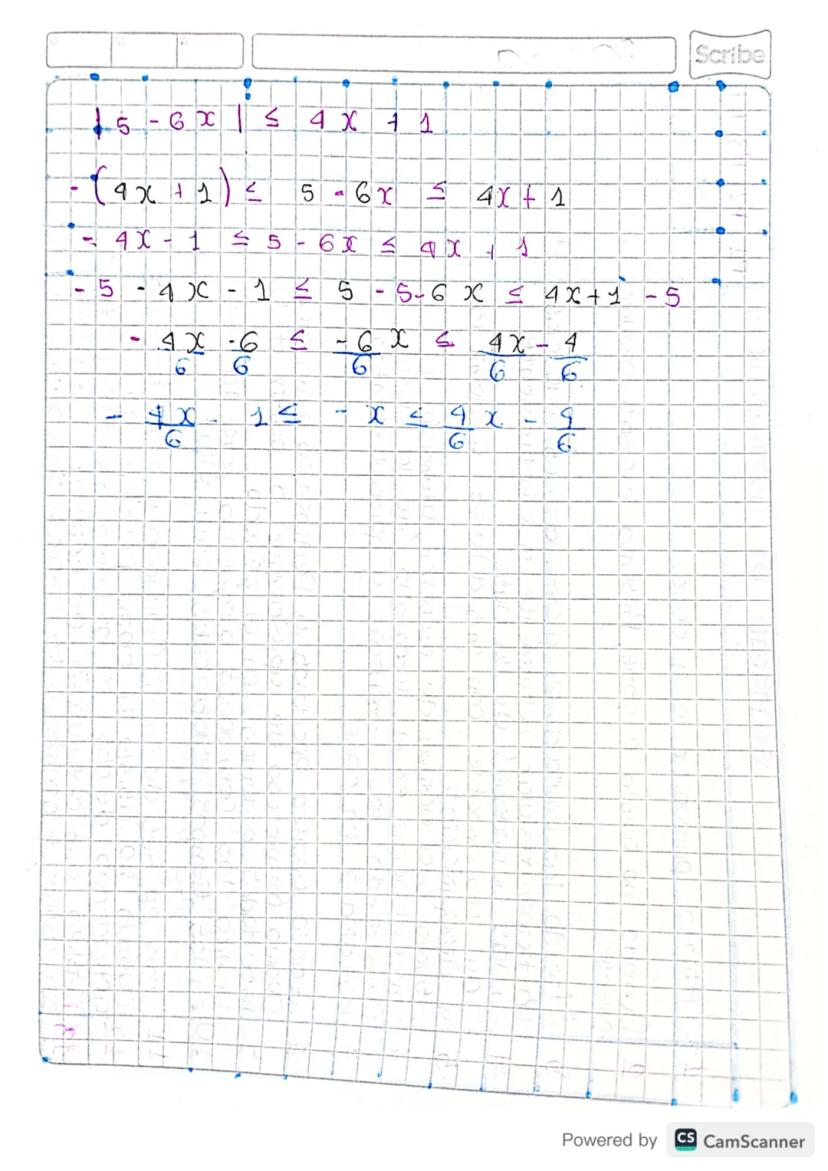 Scribe
|5 - 6x| ≤ 4x + 1
-(4x + 1) ≤ 5 - 6x ≤ 4x + 1
- 4x - 1 ≤ 5 - 6x ≤ 4x + 1
- 5 - 4x - 1 ≤ 5 - 5 - 6x ≤ 4x + 1 - 5
- 4x/6 - 6/6 ≤ -6/6 x ≤ 4x/6 - 4/6
- 4x/6 - 1 ≤ - x ≤ 4/6 x - 4/6
Powered by CS CamScanner